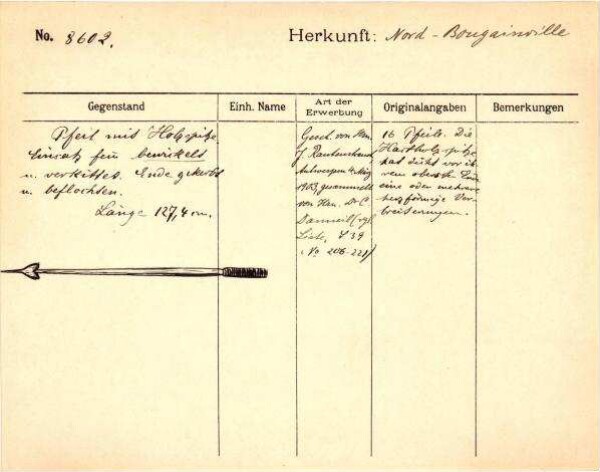 No. 8602.
Herkunft: Nord-Bougainville
Gegenstand
Einh. Name
Art der Erwerbung
Originalangaben
Bemerkungen
Pfeil mit Holzspitze
Einsatz fein bewickelt
u. verkittet. Ende gekerbt
u. beflochten.
Länge 127,4 cm.
Gesch. von Hrn.
J. Rautenstrauch
Antwerpen
1903, gesammelt
von Hrn. Dr. C.
Danneil (vgl.
Liste, S 39
No 206-221)
16 Pfeile. Die
Hartholzspitze
hat dicht vor ih-
rem obersten
eine oder mehrere
herzförmige Ver-
breiterungen.